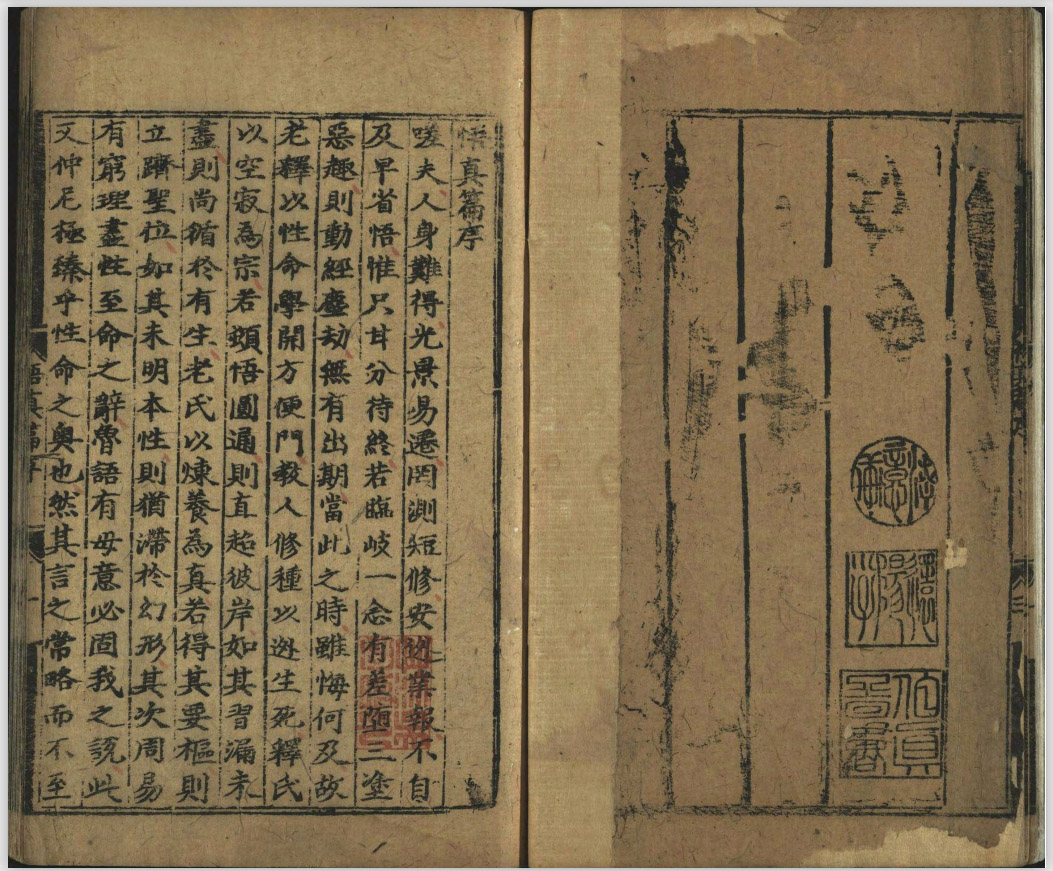 悟真篇序
嗟夫人身難得光景易遷罔測短修安逃業報不自
及早省悟惟只甘分待終若臨岐一念有差堕三塗
惡趣則動經塵劫無有出期當此之時雖悔何及故
老釋以性命學開方便門教人修種以逃生死釋氏
以空寂為宗若頓悟圓通則直超彼岸如其習漏未
盡則尚循於有生老氏以煉養為真若得其要樞則
立躋聖位如其未明本性則猶滯於幻形其次周易
有窮理盡性至命之辭魯語有毋意必固我之說此
又仲尼極臻乎性命之奧也然其言之常略而不至
悟真篇序 一